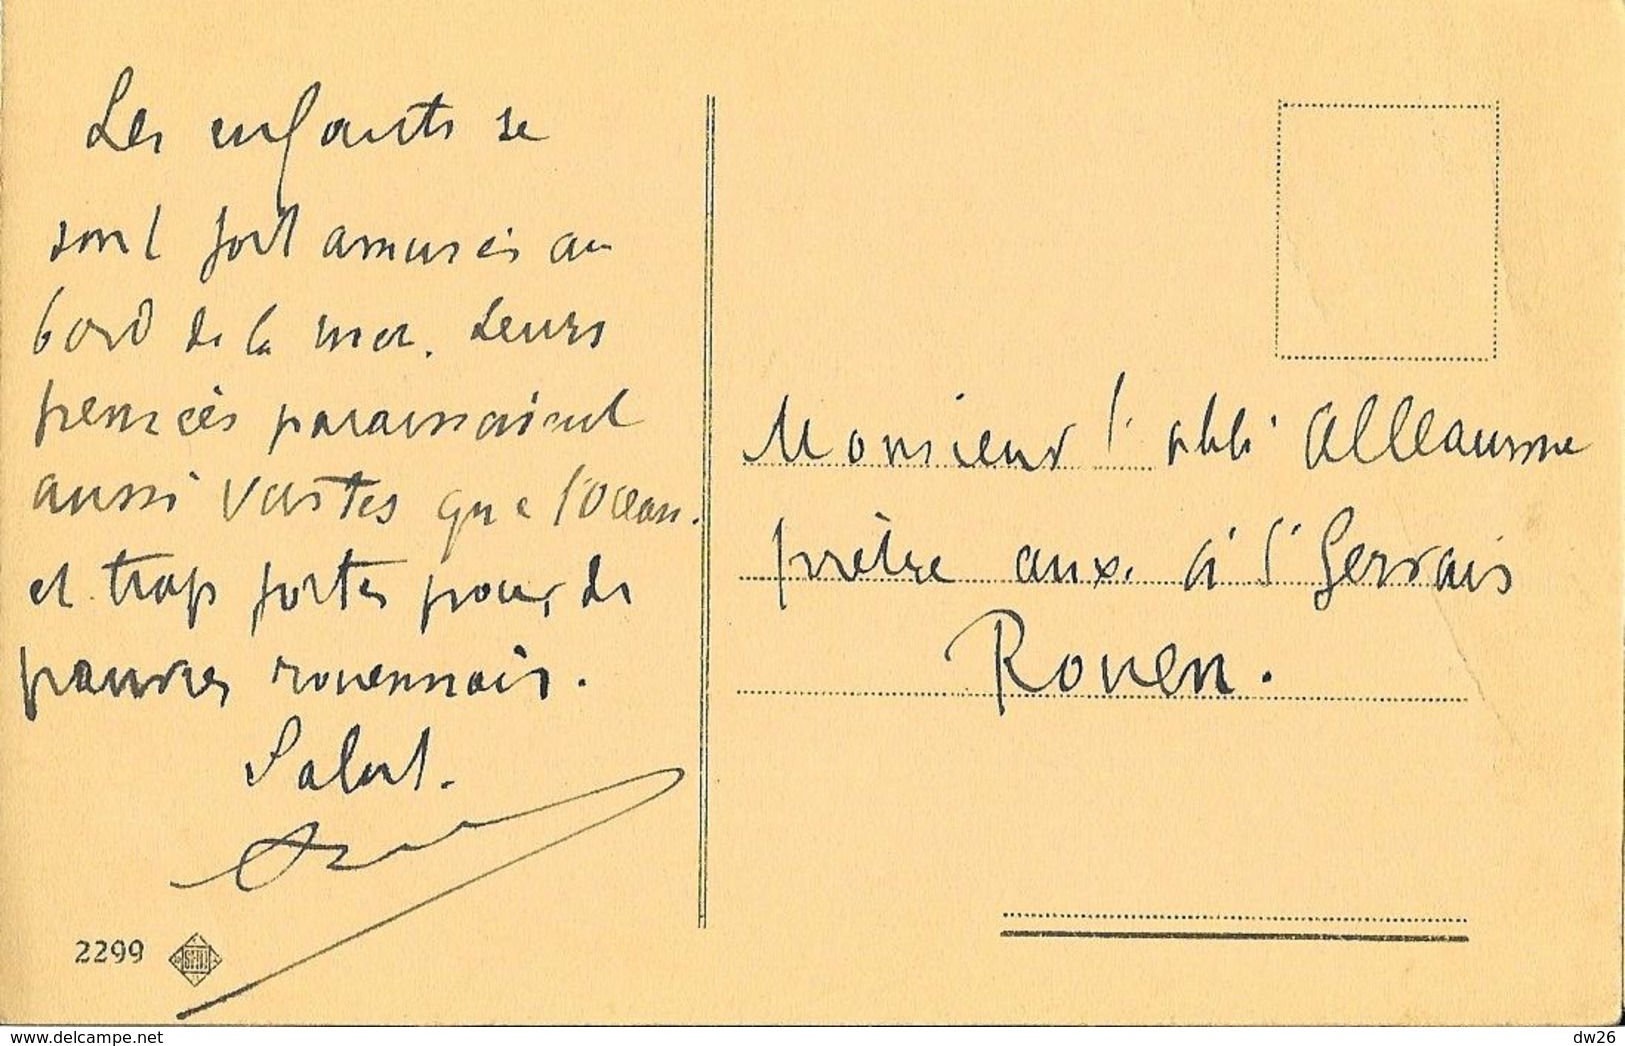 Les enfants se
sont fort amusés au
bord de la mer. Leurs
pensées paraissaient
aussi vastes que l'océan.
et trop fortes pour, de
pauvres rouennais.
Salut.
2299
Monsieur l'abbé Alleaume
prêtre aux. à St Gervais
Rouen.
www.delcampe.net
dw26